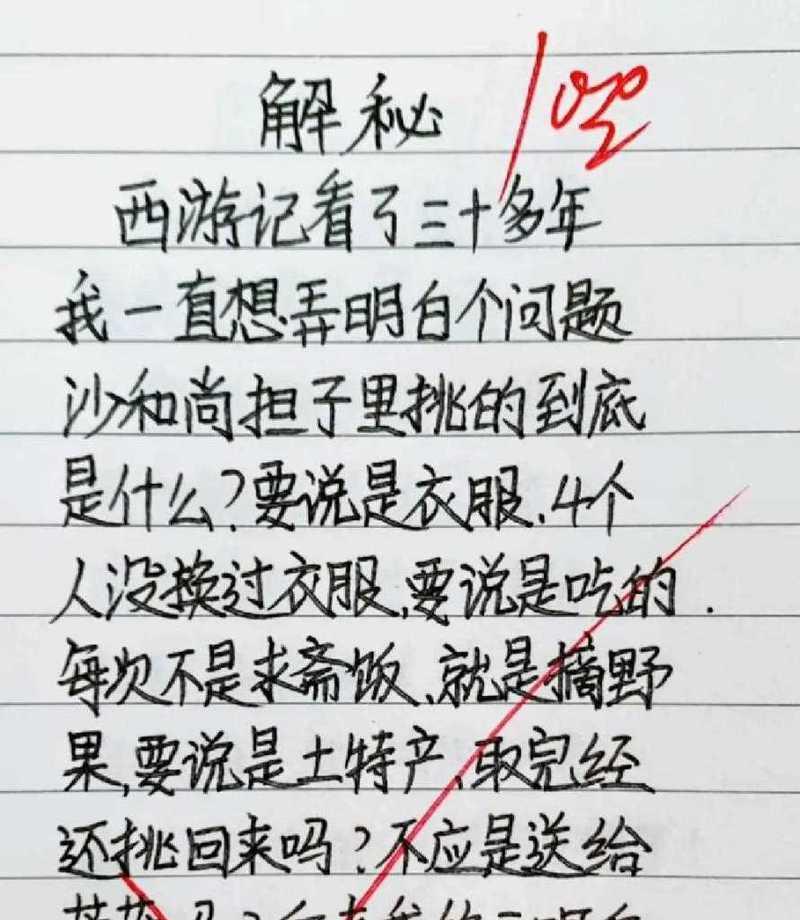 解秘
西游记看了三十多年
我一直想弄明白个问题
沙和尚担子里挑的到底
是什么?要说是衣服、4个
人没换过衣服,要说是吃的.
每次不是求斋饭、就是摘野
果,要说是土特产、取完经
还挑回来吗?不应是送给